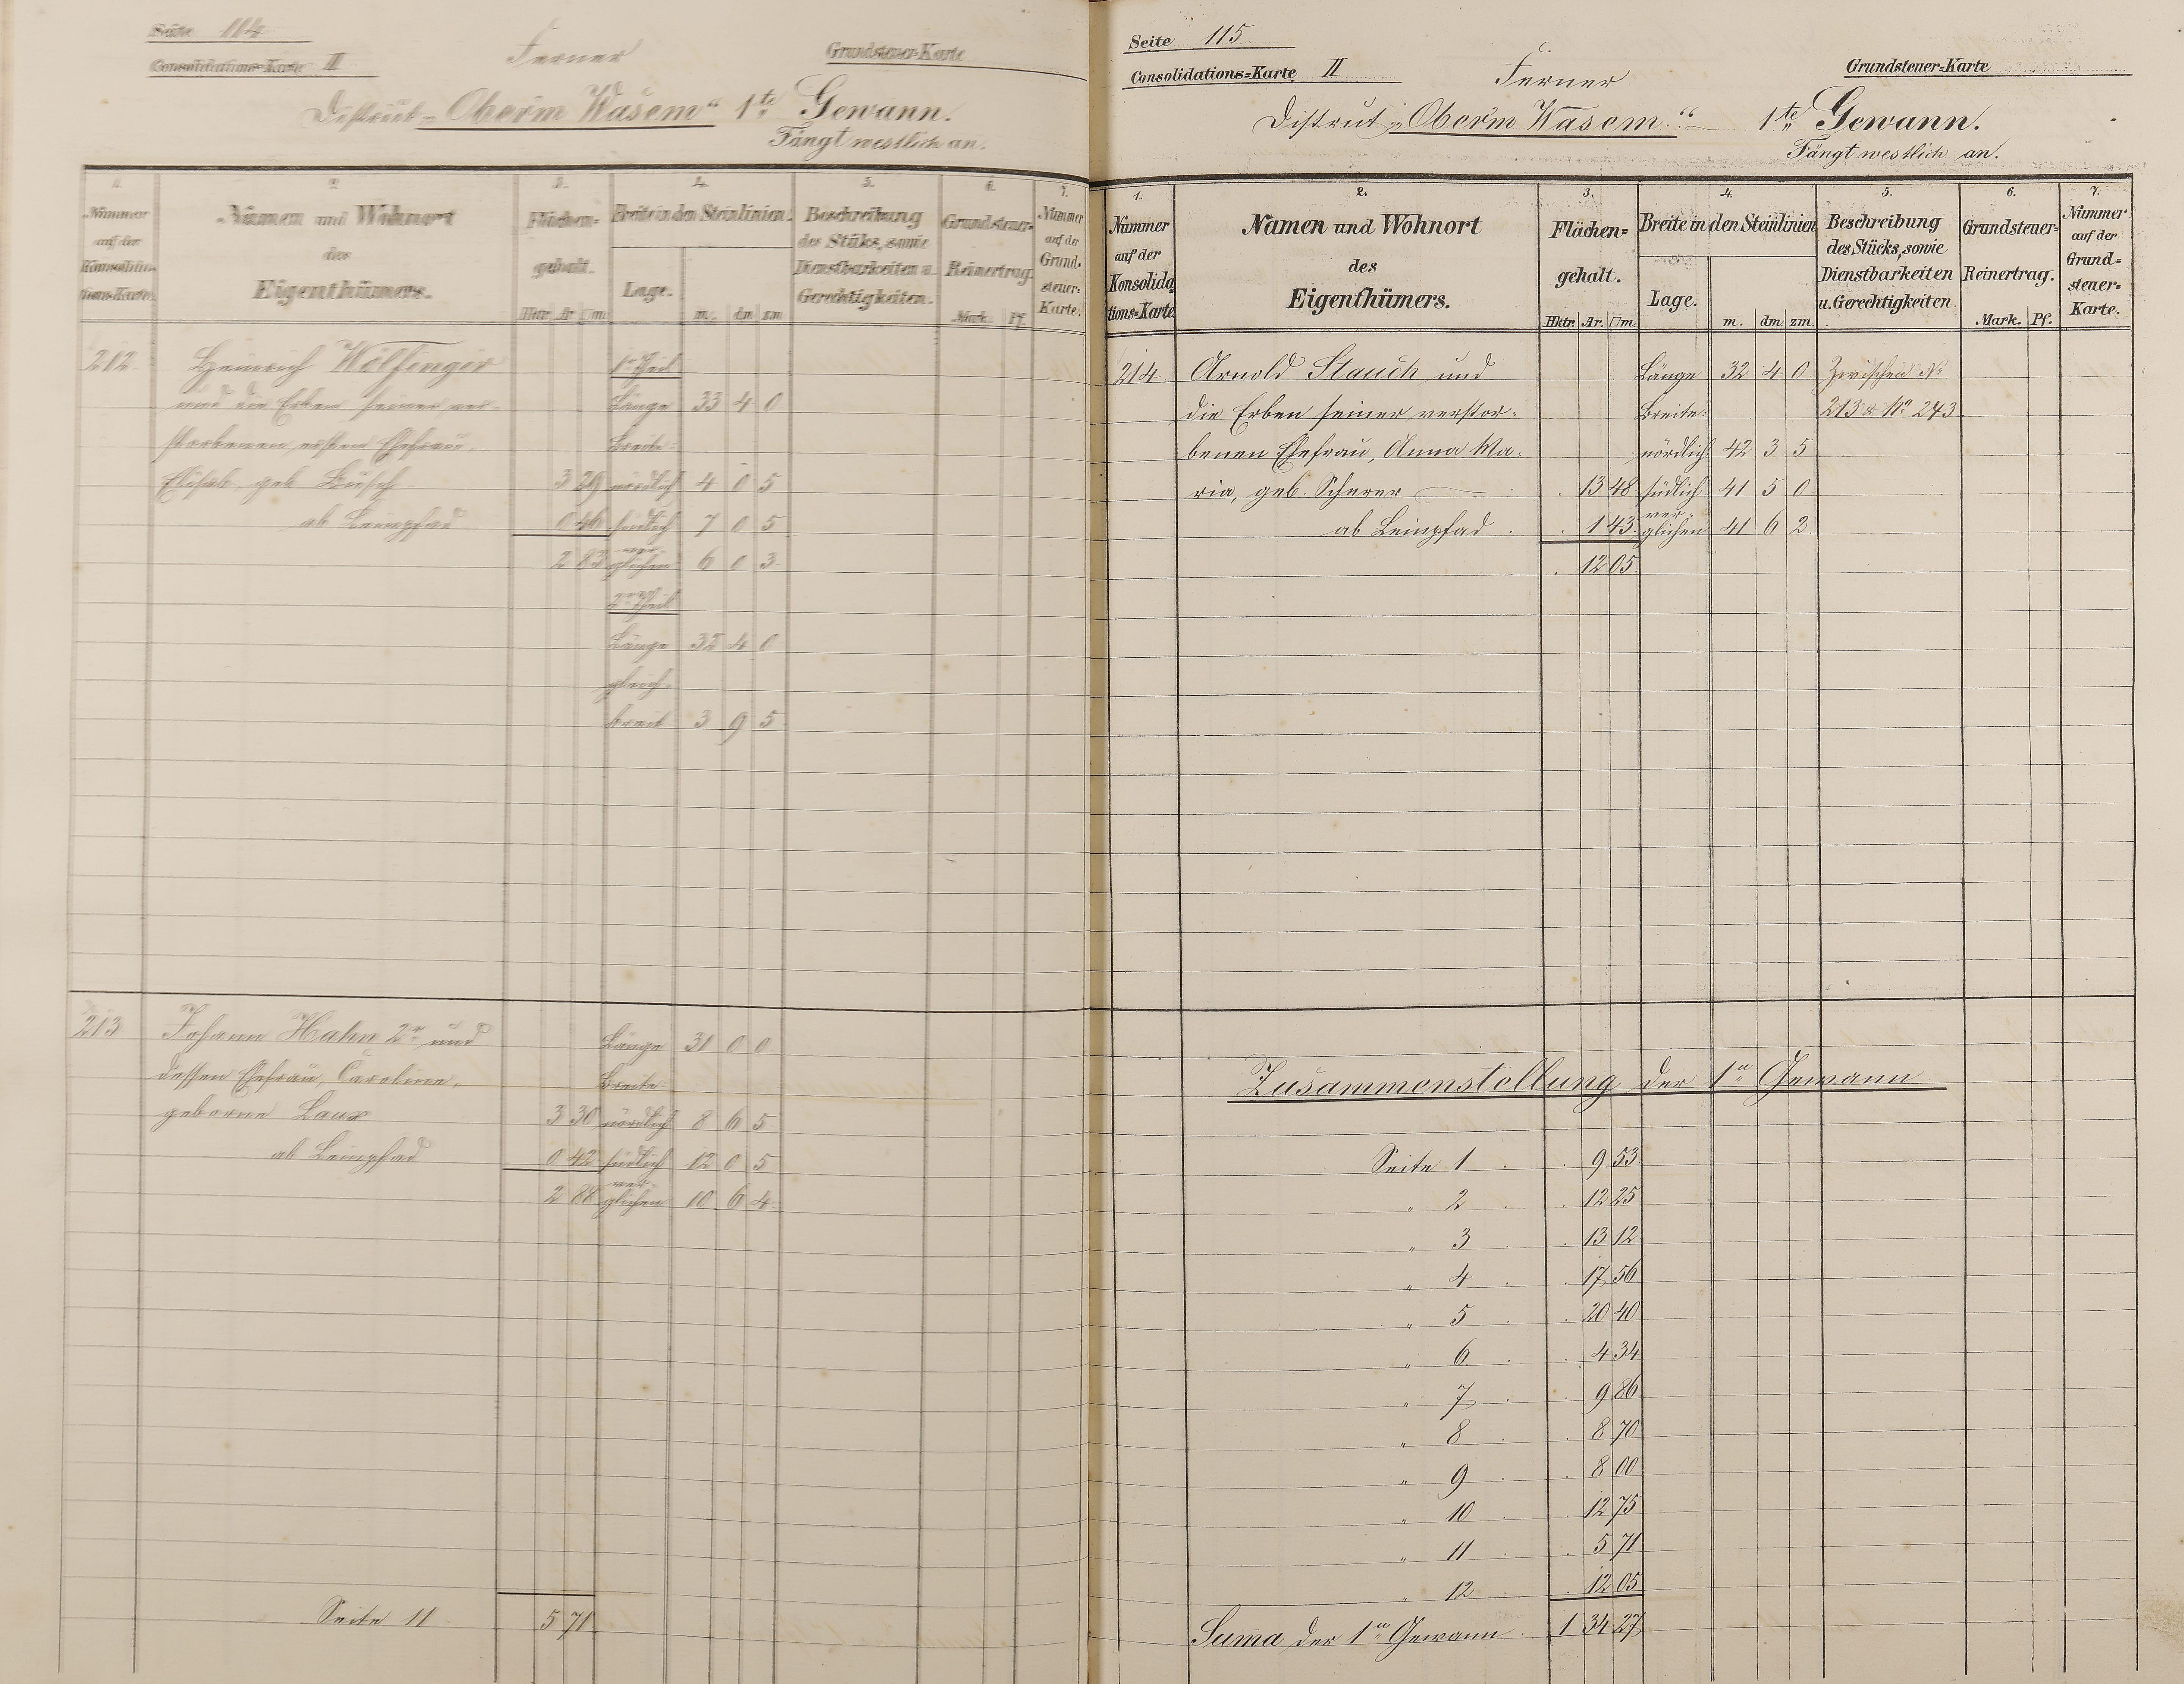 Seite 114
Consolidations=Karte II
Ferner
Grundsteuer=Karte
District „Ober'm Wasem“ 1te Gewann.
Fängt westlich an.
1. 2. 3. 4. 5. 6. 7.
Nummer auf der Konsolida= tions=Karte.
Namen und Wohnort des Eigenthümers.
Flächen= gehalt.
Hktr. Ar □m
Breite in den Steinlinien.
Lage. m. dm zm
Beschreibung des Stüks, sowie Dienstbarkeiten u. Gerechtigkeiten.
Grundsteuer= Reinertrag.
Mark. Pf.
Nummer auf der Grund= steuer= Karte.
212 Heinrich Wölfinger 1r Theil
und die Erben seiner ver= Länge 33 4 0
storbenen ersten Ehefrau, Breite:
Elisab. geb. Busch 3 29 nördlich 4 0 5
ab Leinpfad 0 46 südlich 7 0 5
2 83 ver= glichen 6 0 3
2ter Theil
Länge 32 4 0
gleich=
breit 3 9 5
213 Johann Hahn 2r und Länge 31 0 0
dessen Ehefrau, Caroline, Breite:
geborne Laux 3 30 nördlich 8 6 5
ab Leinpfad 0 42 südlich 12 0 5
2 88 ver= glichen 10 6 4
Seite 11 5 71
Seite 115
Consolidations=Karte II
Ferner
Grundsteuer=Karte
District „Ober'm Wasem.“ 1te Gewann.
Fängt westlich an.
1. 2. 3. 4. 5. 6. 7.
Nummer auf der Konsolida= tions=Karte
Namen und Wohnort des Eigenthümers.
Flächen= gehalt.
Hktr. Ar. □m
Breite in den Steinlinien
Lage. m. dm zm
Beschreibung des Stücks, sowie Dienstbarkeiten u. Gerechtigkeiten.
Grundsteuer= Reinertrag.
Mark. Pf.
Nummer auf der Grund= steuer= Karte.
214 Arnold Stauch und Länge 32 4 0 Zwischen No
die Erben seiner verstor= Breite: 213 & No 243
benen Ehefrau, Anna Ma= nördlich 42 3 5
ria, geb. Scherer 13 48 südlich 41 5 0
ab Leinpfad 1 43 ver= glichen 41 6 2
12 05
Zusammenstellung der 1n Gewann
Seite 1 9 53
„ 2 12 25
„ 3 13 12
„ 4 17 56
„ 5 20 40
„ 6 4 34
„ 7 9 86
„ 8 8 70
„ 9 8 00
„ 10 12 75
„ 11 5 71
„ 12 12 05
Summa der 1n Gewann 1 34 27